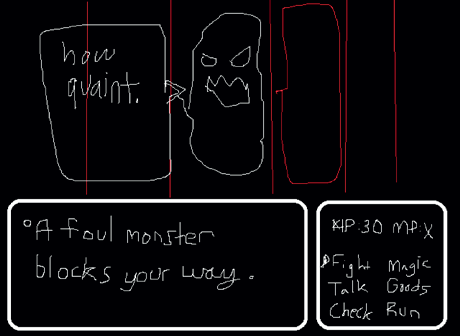 how
quaint.
°A foul monster
blocks your way.
HP:30 MP:X
Fight Magic
Talk Goods
Check Run